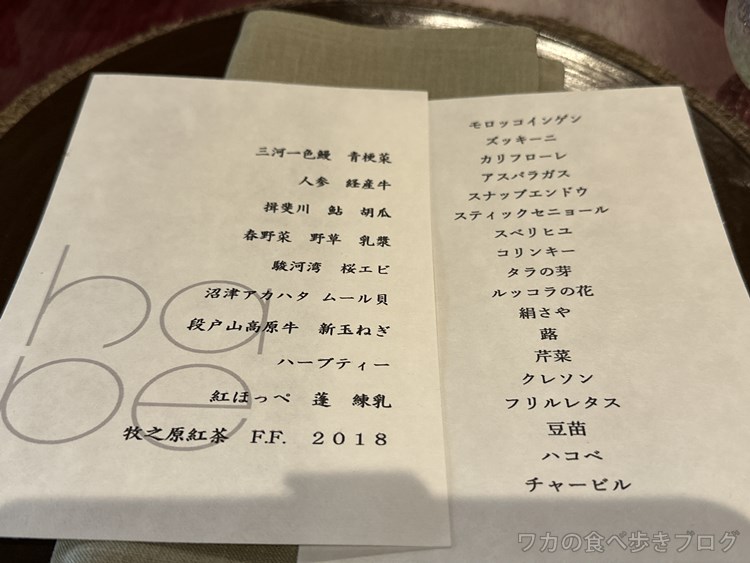 三河一色鰻 青梗菜
人参 経産牛
揖斐川 鮎 胡瓜
春野菜 野草 乳漿
駿河湾 桜エビ
沼津アカハタ ムール貝
段戸山高原牛 新玉ねぎ
ハーブティー
紅ほっぺ 蓬 練乳
牧之原紅茶 F.F. 2018
ha
be
モロッコインゲン
ズッキーニ
カリフローレ
アスパラガス
スナップエンドウ
スティックセニョール
スベリヒユ
コリンキー
タラの芽
ルッコラの花
絹さや
蕗
芹菜
クレソン
フリルレタス
豆苗
ハコベ
チャービル
ワカの食べ歩きブログ